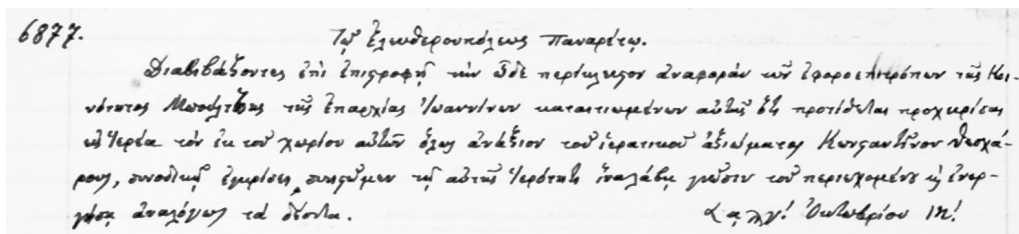 6877.
Τῷ Ἐλευθερουπόλεως Παναρέτῳ.
Διαβιβάζοντες ἐπὶ ἐπιστροφῇ τὴν ὧδε περίκλειστον ἀναφορὰν τῶν ἐφοροεπιτρόπων τῆς Κοι-
νότητος τῆς ἐπαρχίας Ἰωαννίνων καταιτιωμένων αὐτῆς ὅτι προτίθεται προχειρίσαι
εἰς ἱερέα τὸν ἐκ τοῦ χωρίου αὐτῶν ὅλως ἀνάξιον τοῦ ἱερατικοῦ ἀξιώματος Κωνσταντῖνον Θεοχά-
ρους, συνοδικῇ ἐγκρίσει, τῇ αὐτῆς Ἱερότητι ἵνα λάβῃ γνῶσιν τοῦ περιεχομένου καὶ ἐνερ-
γήσῃ ἀναλόγως τὰ δέοντα. Ὀκτωβρίου ιη!